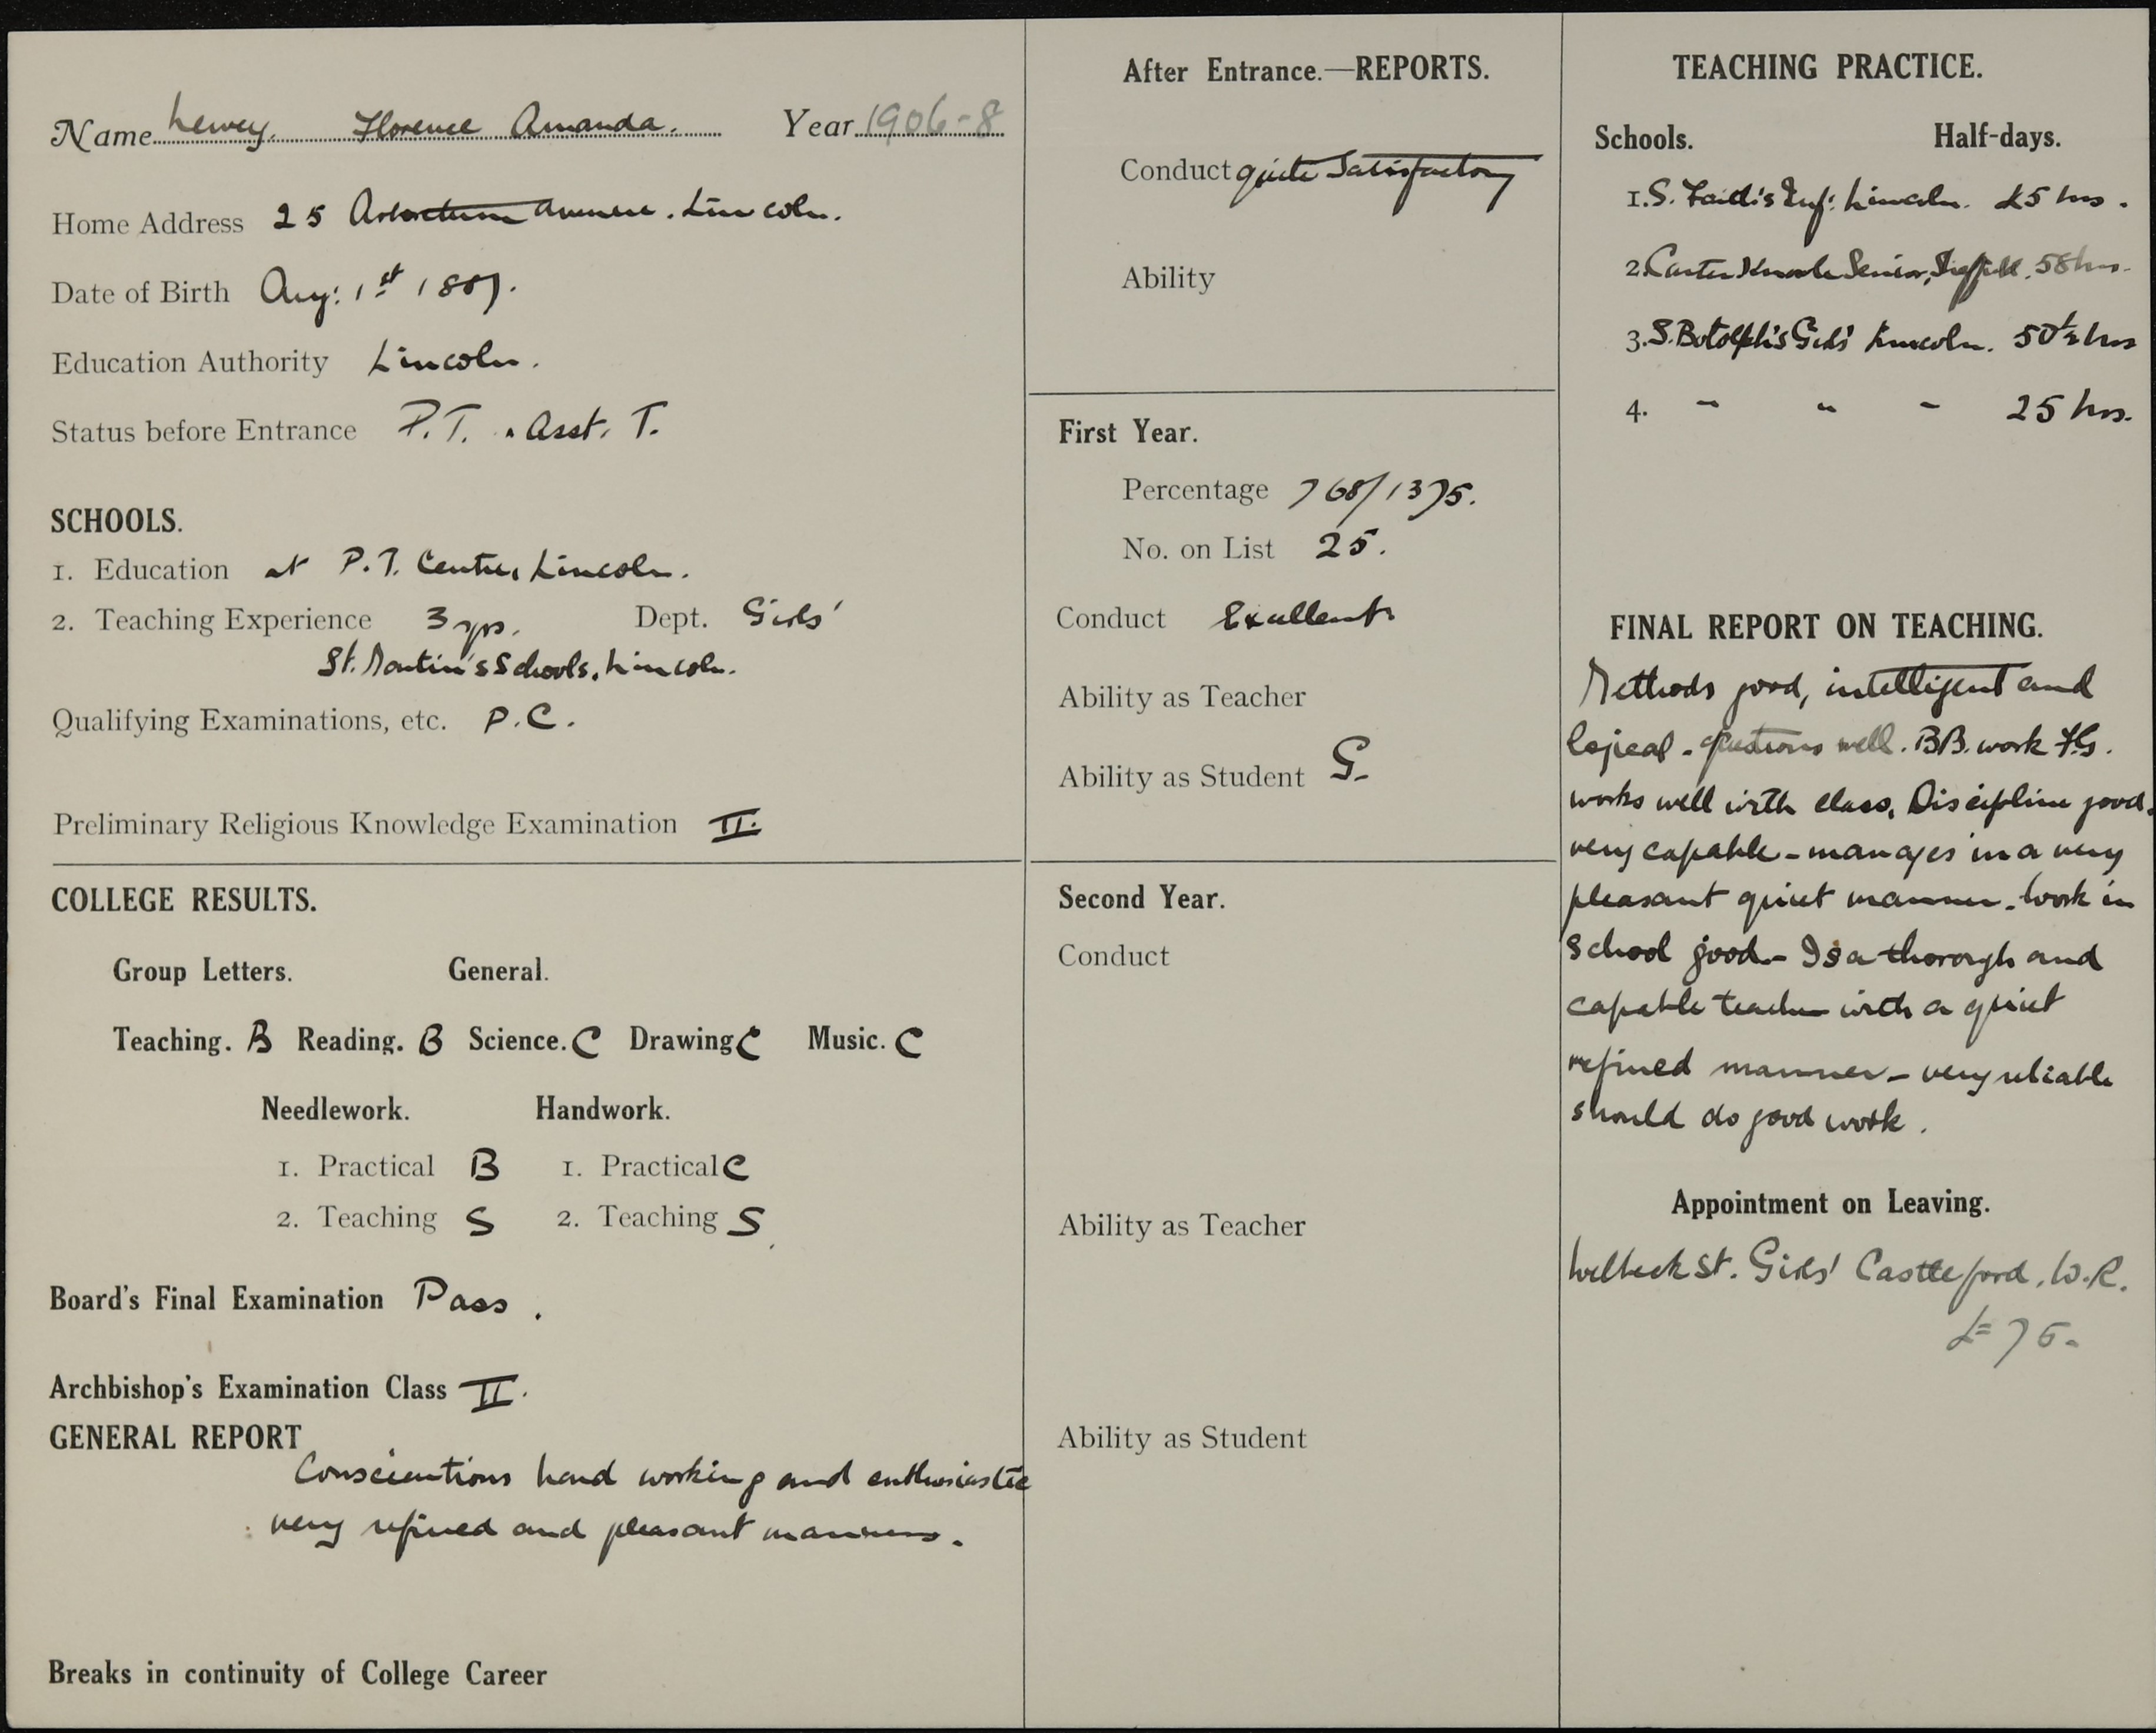 Name Lewey, Florence Amanda. Year 1906-8
Home Address 25 Arboretum Avenue. Lincoln.
Date of Birth Aug: 1st 1887.
Education Authority Lincoln.
Status before Entrance P.T. & Asst. T.
SCHOOLS.
1. Education at P.T. Centre, Lincoln.
2. Teaching Experience 3 yrs. Dept. Girls'
St. Martin's Schools, Lincoln.
Qualifying Examinations, etc. P.C.
Preliminary Religious Knowledge Examination II.
COLLEGE RESULTS.
Group Letters. General.
Teaching. B Reading. B Science. C Drawing C Music. C
Needlework. Handwork.
1. Practical B 1. Practical C
2. Teaching S 2. Teaching S
Board's Final Examination Pass.
Archbishop's Examination Class II.
GENERAL REPORT
Conscientious hard working and enthusiastic
very refined and pleasant manners.
Breaks in continuity of College Career
After Entrance.—REPORTS.
Conduct quite satisfactory
Ability
First Year.
Percentage 768/1375.
No. on List 25.
Conduct Excellent
Ability as Teacher
Ability as Student G.
Second Year.
Conduct
Ability as Teacher
Ability as Student
TEACHING PRACTICE.
Schools. Half-days.
1. S. Faith's Inf: Lincoln. 25 hrs.
2. Carter Knowle Senior, Sheffield. 58 hrs.
3. S. Botolph's Girls' Lincoln. 50½ hrs
4. " " " 25 hrs.
FINAL REPORT ON TEACHING.
Methods good, intelligent and
logical - questions well. BB. work F.G.
works well with class. Discipline good.
very capable - manages in a very
pleasant quiet manner. Work in
school good - Is a thorough and
capable teacher with a quiet
refined manner - very reliable
should do good work.
Appointment on Leaving.
Welbeck St. Girls' Castleford, W.R.
£75.